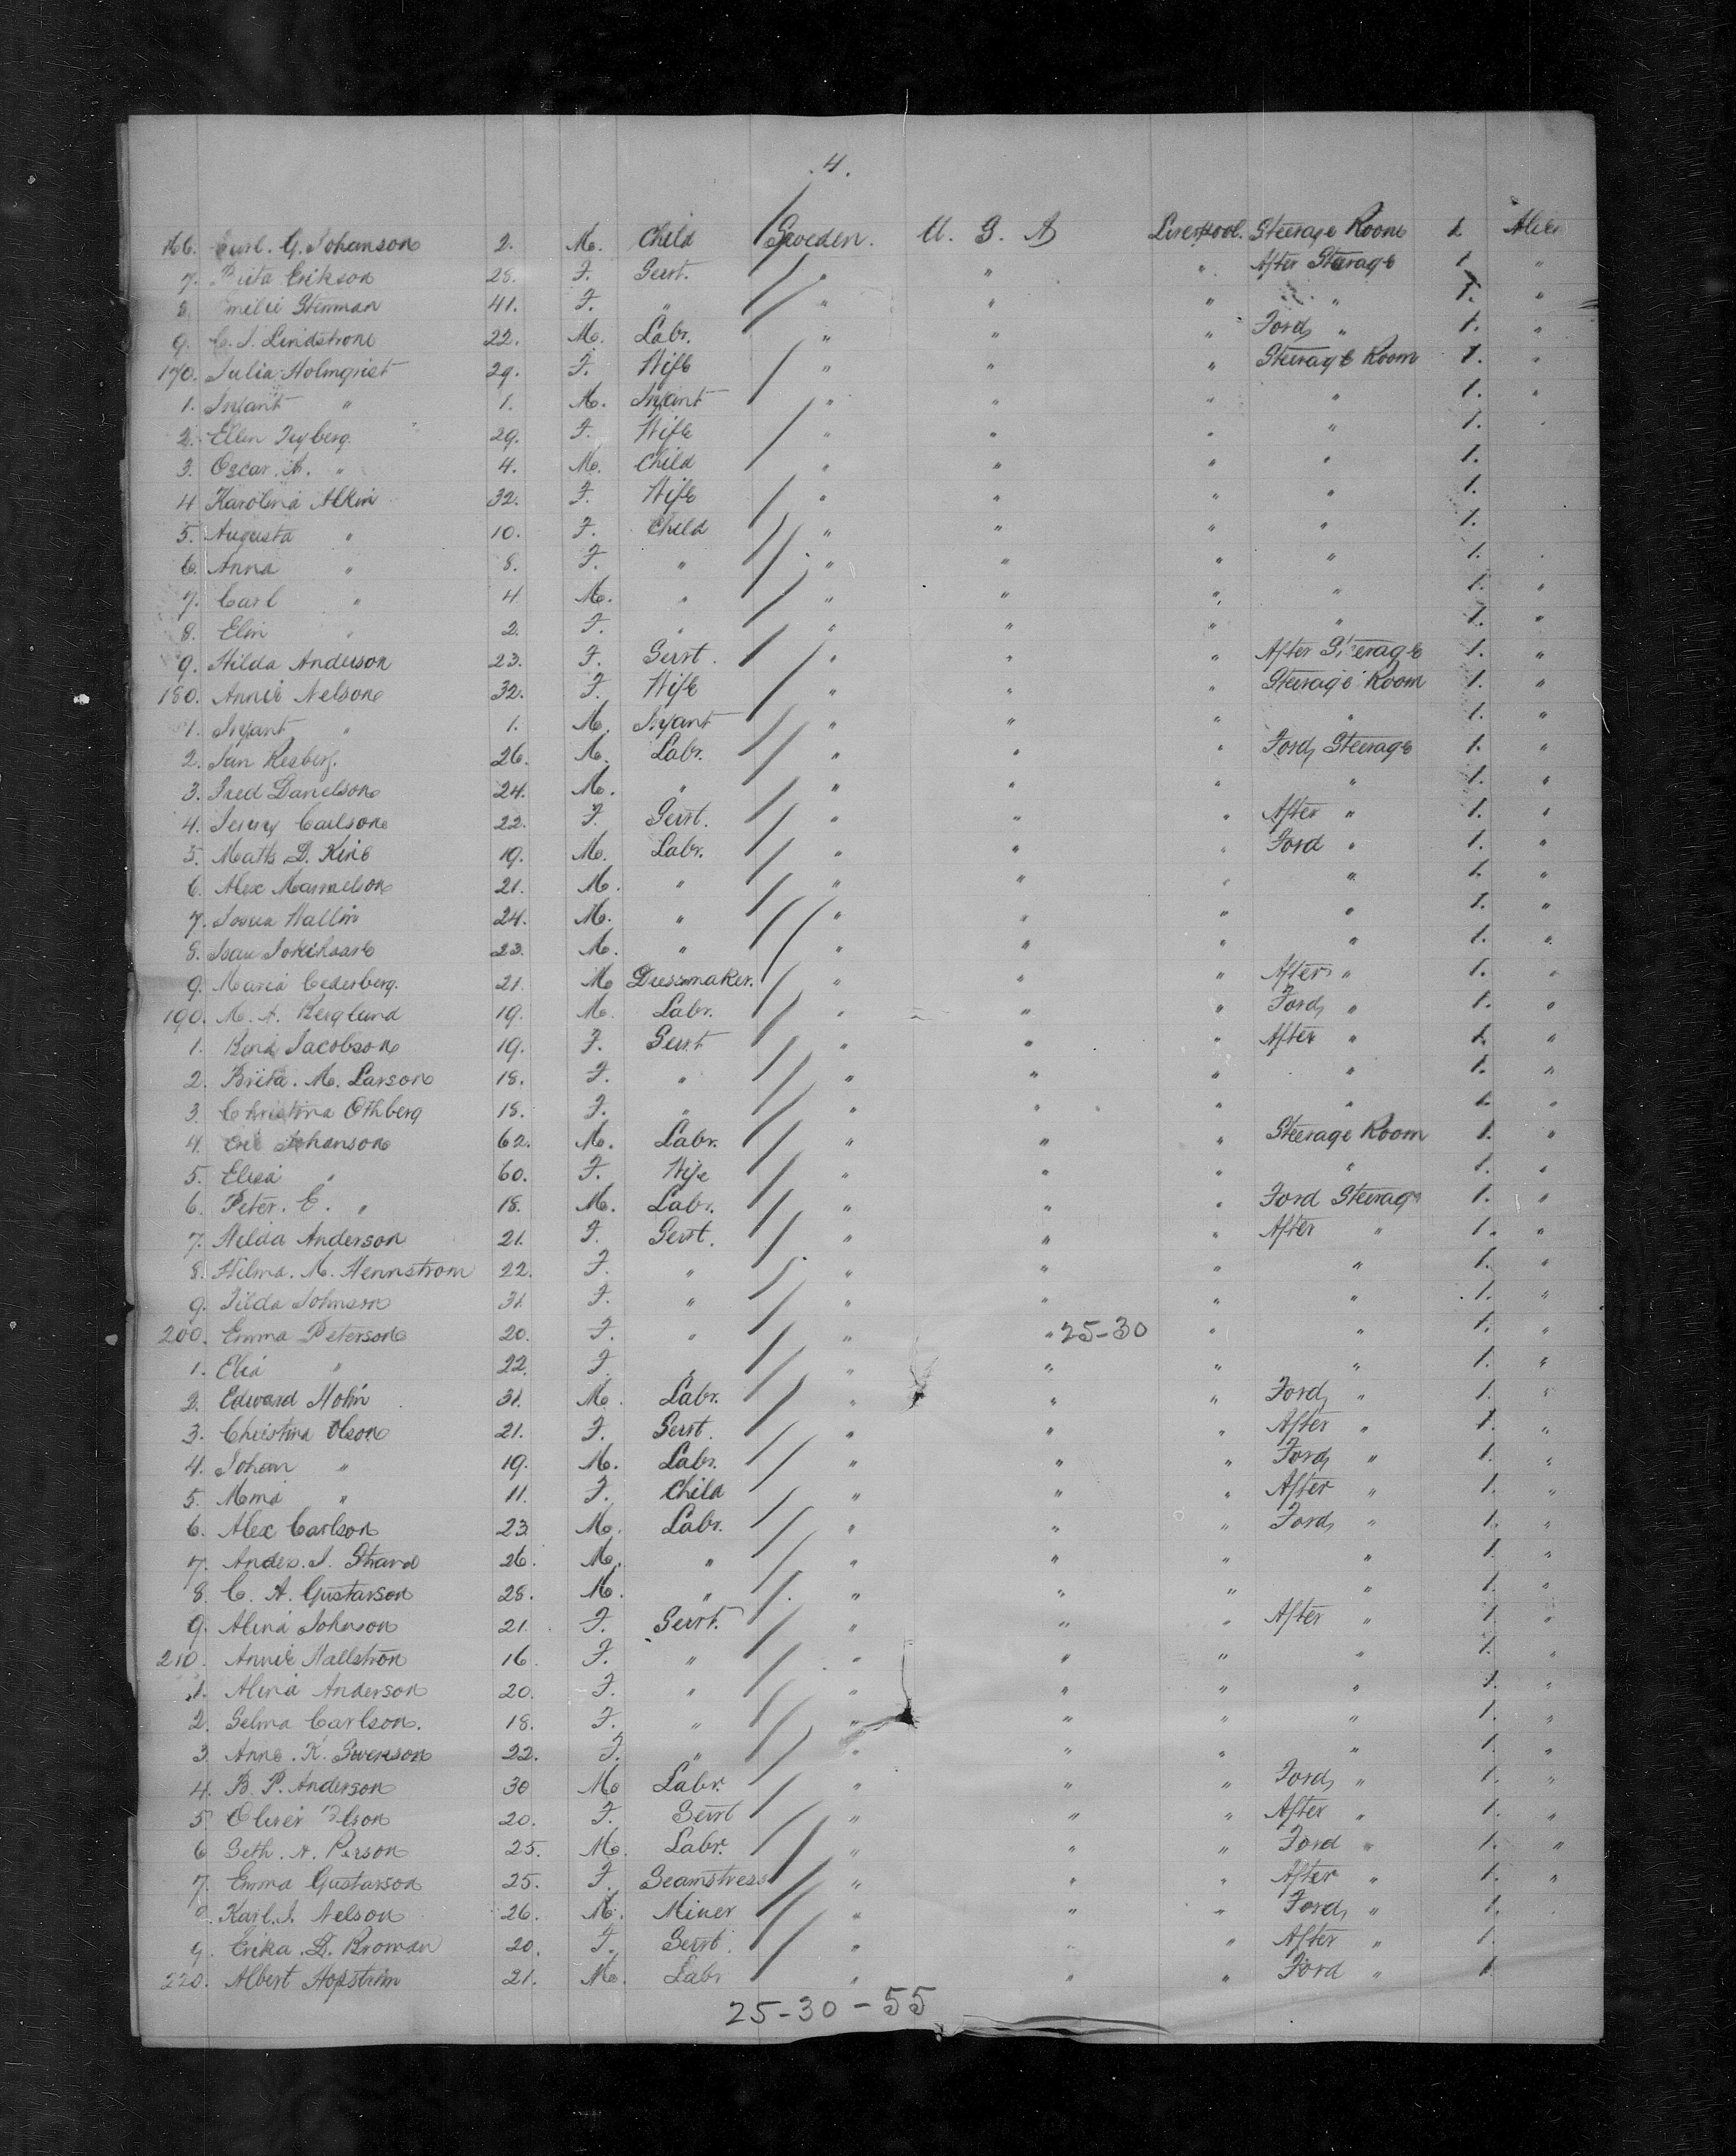 . 4 .
166. Carl. G. Johanson 2. M. Child Sweden. U. S. A Liverpool. Steerage Room 1 Alien
7. Brita Erikson 28. F. Servt. " " " After Steerage 1. "
8. Emilie Stenman 41. F. " " " " " 1. "
9. C. J. Lindstrom 22. M. Labr. " " " Ford " 1. "
170. Julia Holmqvist 29. F. Wife " " " Steerage Room 1. "
1. Infant " 1. M. Infant " " " " 1. "
2. Ellen 29. F. Wife " " " " 1. "
3. Oscar. A. " 4. M. Child " " " " 1.
4 Karolina Alkin 32. F. Wife " " " " 1.
5. Augusta " 10. F. Child " " " " 1.
6. Anna " 8. F. " " " " " 1.
7. Carl " 4. M. " " " " " 1. "
8. Elin " 2. F. " " " " " 1. "
9. Hilda Anderson 23. F. Servt. " " " After Steerage 1. "
180. Annie Nelson 32. F. Wife " " " Steerage Room 1. "
1. Infant " 1. M. Infant " " " " 1. "
2. 26. M. Labr. " " " Ford Steerage 1. "
3. Fred Danelson 24. M. " " " " " 1. "
4. Jenny Carlson 22. F. Servt. " " " After " 1. "
5. Matts D. 19. M. Labr. " " " Ford " 1. "
6. Alex 21. M. " " " " " 1. "
7. Wallin 24. M. " " " " " 1. "
8. 23. M. " " " " " 1. "
9. Maria Cederberg. 21. M Dressmaker. " " " After " 1. "
190. M. A. Berglund 19. M. Labr. " " " Ford " 1. "
1. Jacobson 19. F. Servt " " " After " 1. "
2. Brita. M. Larson 18. F. " " " " " 1. "
3. Christina Othberg 18. F. " " " " " 1. "
4. Johanson 62. M. Labr. " " " Steerage Room 1. "
5. " 60. F. Wife " " " " 1. "
6. Peter. E. " 18. M. Labr. " " " Ford Steerage 1. "
7. Hilda Anderson 21. F. Servt. " " " After " 1. "
8. Hilma. M. Wennstrom 22. F. " " " " " 1. "
9. Tilda Johnson 31. F. " " " " " 1. "
200. Emma Peterson 20. F. " " " 25-30 " " 1. "
1. " 22. F. " " " " " 1. "
2. Edward 31. M. Labr. " " " Ford " 1. "
3. Christina Olson 21. F. Servt. " " " After " 1. "
4. Johan " 19. M. Labr. " " " Ford " 1. "
5. " 11. F. Child " " " After " 1. "
6. Alex Carlson 23 M. Labr. " " " Ford " 1. "
7. Anders. J. 26. M. " " " " " 1. "
8. C. A. Gustavson 28. M. " " " " " 1. "
9. Alina Johnson 21. F. Servt. " " " After " 1. "
210. Annie Hallstrom 16. F. " " " " " 1. "
1. Alina Anderson 20. F. " " " " " 1. "
2. Selma Carlson. 18. F. " " " " " 1. "
3. Anna. K. Swenson 22. F. " " " " " 1. "
4. B. P. Anderson 30 M Labr. " " " Ford " 1. "
5 20. F. Servt " " " After " 1. "
6 Seth. A. Person 25. M. Labr. " " " Ford " 1. "
7. Emma Gustavson 25. F. Seamstress " " " After " 1. "
8. Karl. J. Nelson 26. M. Miner " " " Ford " 1.
9. Erika. B. Kroman 20. F. Servt. " " " After " 1.
220. Albert 21. M. Labr " " " Ford " 1
25-30-55